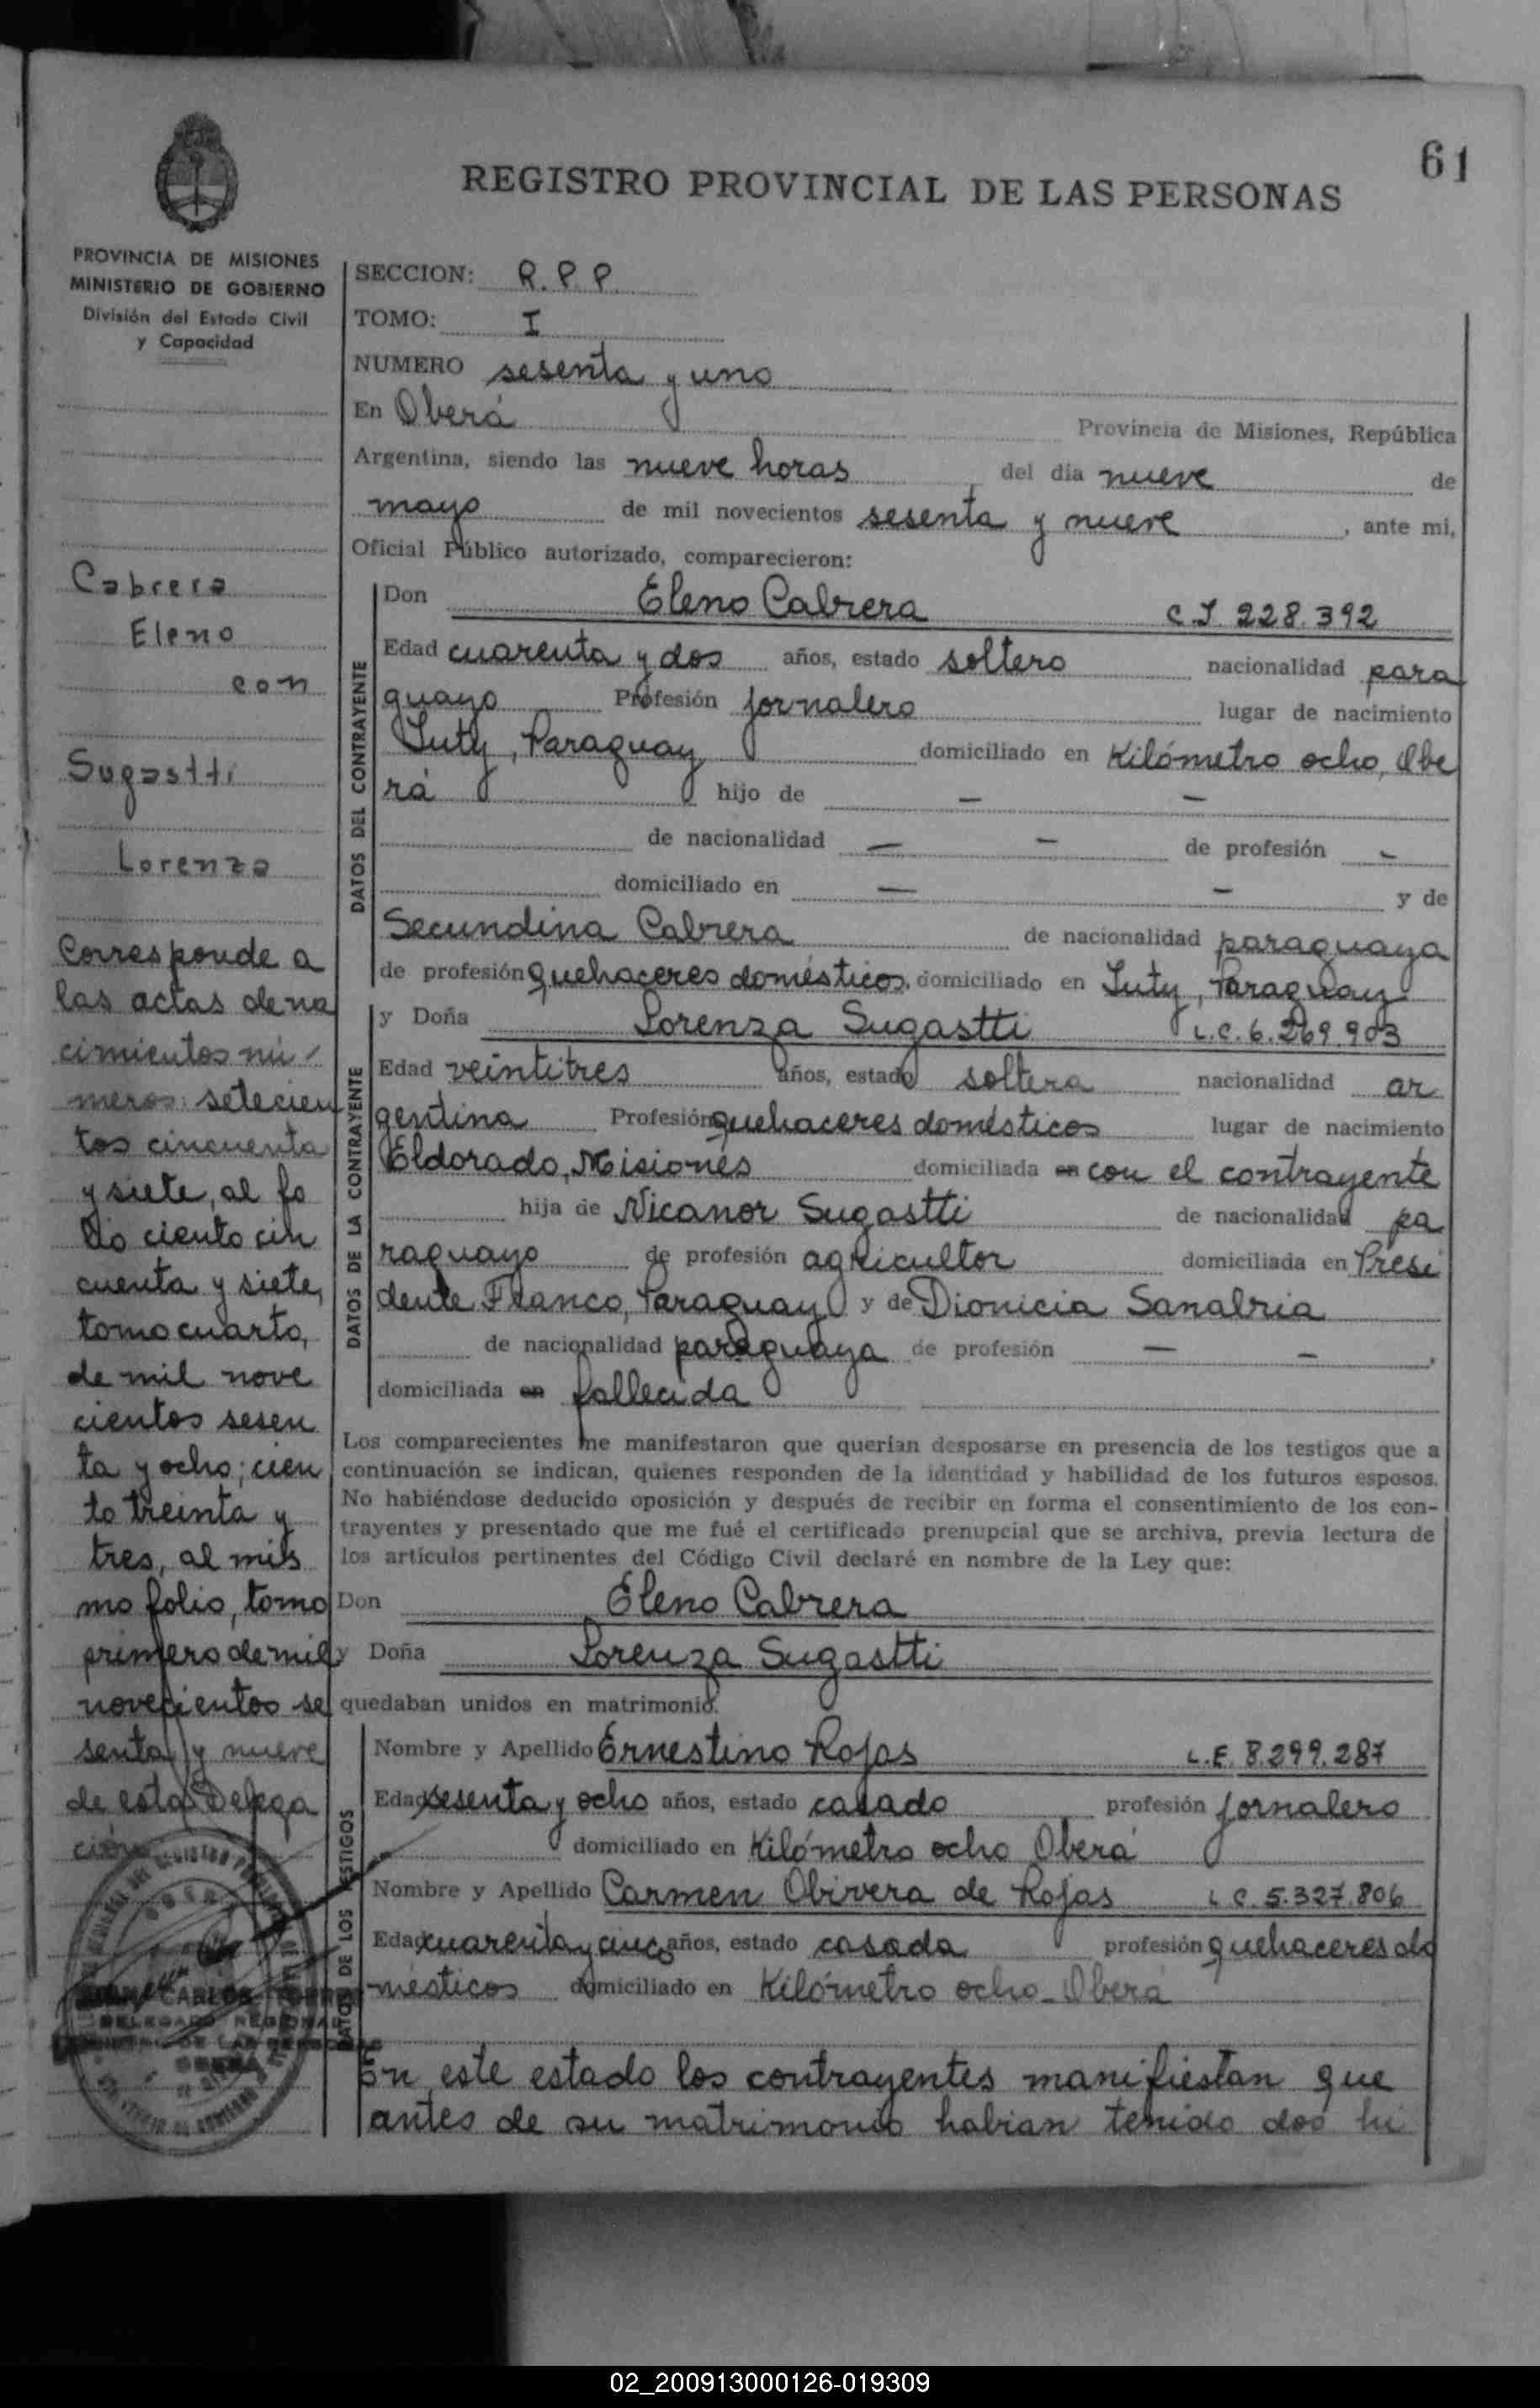 61
REGISTRO PROVINCIAL DE LAS PERSONAS
PROVINCIA DE MISIONES
MINISTERIO DE GOBIERNO
División del Estado Civil
y Capacidad
Cabrera
Eleno
con
Sugastti
Lorenza
Corresponde a
las actas de na
cimientos nú
meros: setecien
tos cincuenta
y siete, al fo
lio ciento cin
cuenta y siete,
tomo cuarto,
de mil nove
cientos sesen
ta y ocho; cien
to treinta y
tres, al mis
mo folio, tomo
primero de mil
novecientos se
senta y nueve
de esta Delega
ción
SECCION: R. P. P.
TOMO: I
NUMERO sesenta y uno
En Oberá Provincia de Misiones, República
Argentina, siendo las nueve horas del día nueve de
mayo de mil novecientos sesenta y nueve, ante mi,
Oficial Público autorizado, comparecieron:
DATOS DEL CONTRAYENTE
Don Eleno Cabrera C.I. 228.392
Edad cuarenta y dos años, estado soltero nacionalidad para
guayo Profesión jornalero lugar de nacimiento
Yuty, Paraguay domiciliado en Kilómetro ocho, Obe
rá hijo de — —
de nacionalidad — — de profesión —
domiciliado en — — y de
Secundina Cabrera de nacionalidad paraguaya
de profesión quehaceres domésticos, domiciliado en Yuty, Paraguay
DATOS DE LA CONTRAYENTE
y Doña Lorenza Sugastti L.C. 6.269.903
Edad veintitres años, estado soltera nacionalidad ar
gentina Profesión quehaceres domésticos lugar de nacimiento
Eldorado, Misiones domiciliada en con el contrayente
hija de Nicanor Sugastti de nacionalidad pa
raguayo de profesión agricultor domiciliada en Presi
dente Franco, Paraguay y de Dionicia Sanabria
de nacionalidad paraguaya de profesión — —,
domiciliada en fallecida
Los comparecientes me manifestaron que querían desposarse en presencia de los testigos que a
continuación se indican, quienes responden de la identidad y habilidad de los futuros esposos.
No habiéndose deducido oposición y después de recibir en forma el consentimiento de los con-
trayentes y presentado que me fué el certificado prenupcial que se archiva, previa lectura de
los artículos pertinentes del Código Civil declaré en nombre de la Ley que:
Don Eleno Cabrera
y Doña Lorenza Sugastti
quedaban unidos en matrimonio.
DATOS DE LOS TESTIGOS
Nombre y Apellido Ernestino Rojas L.E. 8.299.287
Edad sesenta y ocho años, estado casado profesión jornalero
domiciliado en Kilómetro ocho Oberá
Nombre y Apellido Carmen Obivera de Rojas L.C. 5.327.806
Edad cuarenta y cinco años, estado casada profesión quehaceres do
mésticos domiciliado en Kilómetro ocho - Oberá
En este estado los contrayentes manifiestan que
antes de su matrimonio habían tenido dos hi
CARLOS
DELEGADO REGIONAL
OBERA
02_200913000126-019309